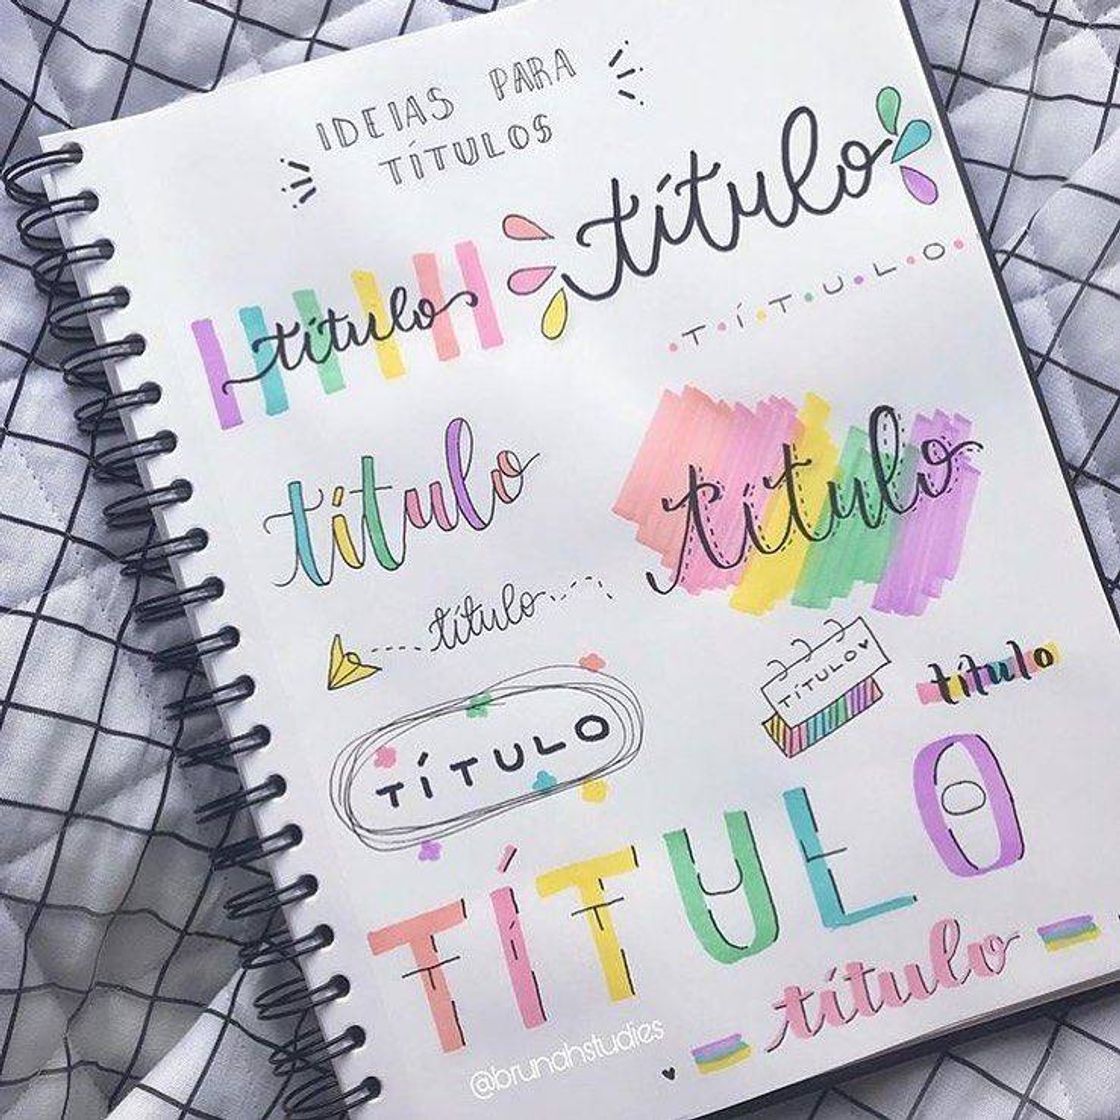 IDEIAS PARA
TÍTULOS
título
título
T·Í·T·U·L·O
título
título
título
TÍTULO♥
título
TÍTULO
TÍTULO
título
@brunahstudies